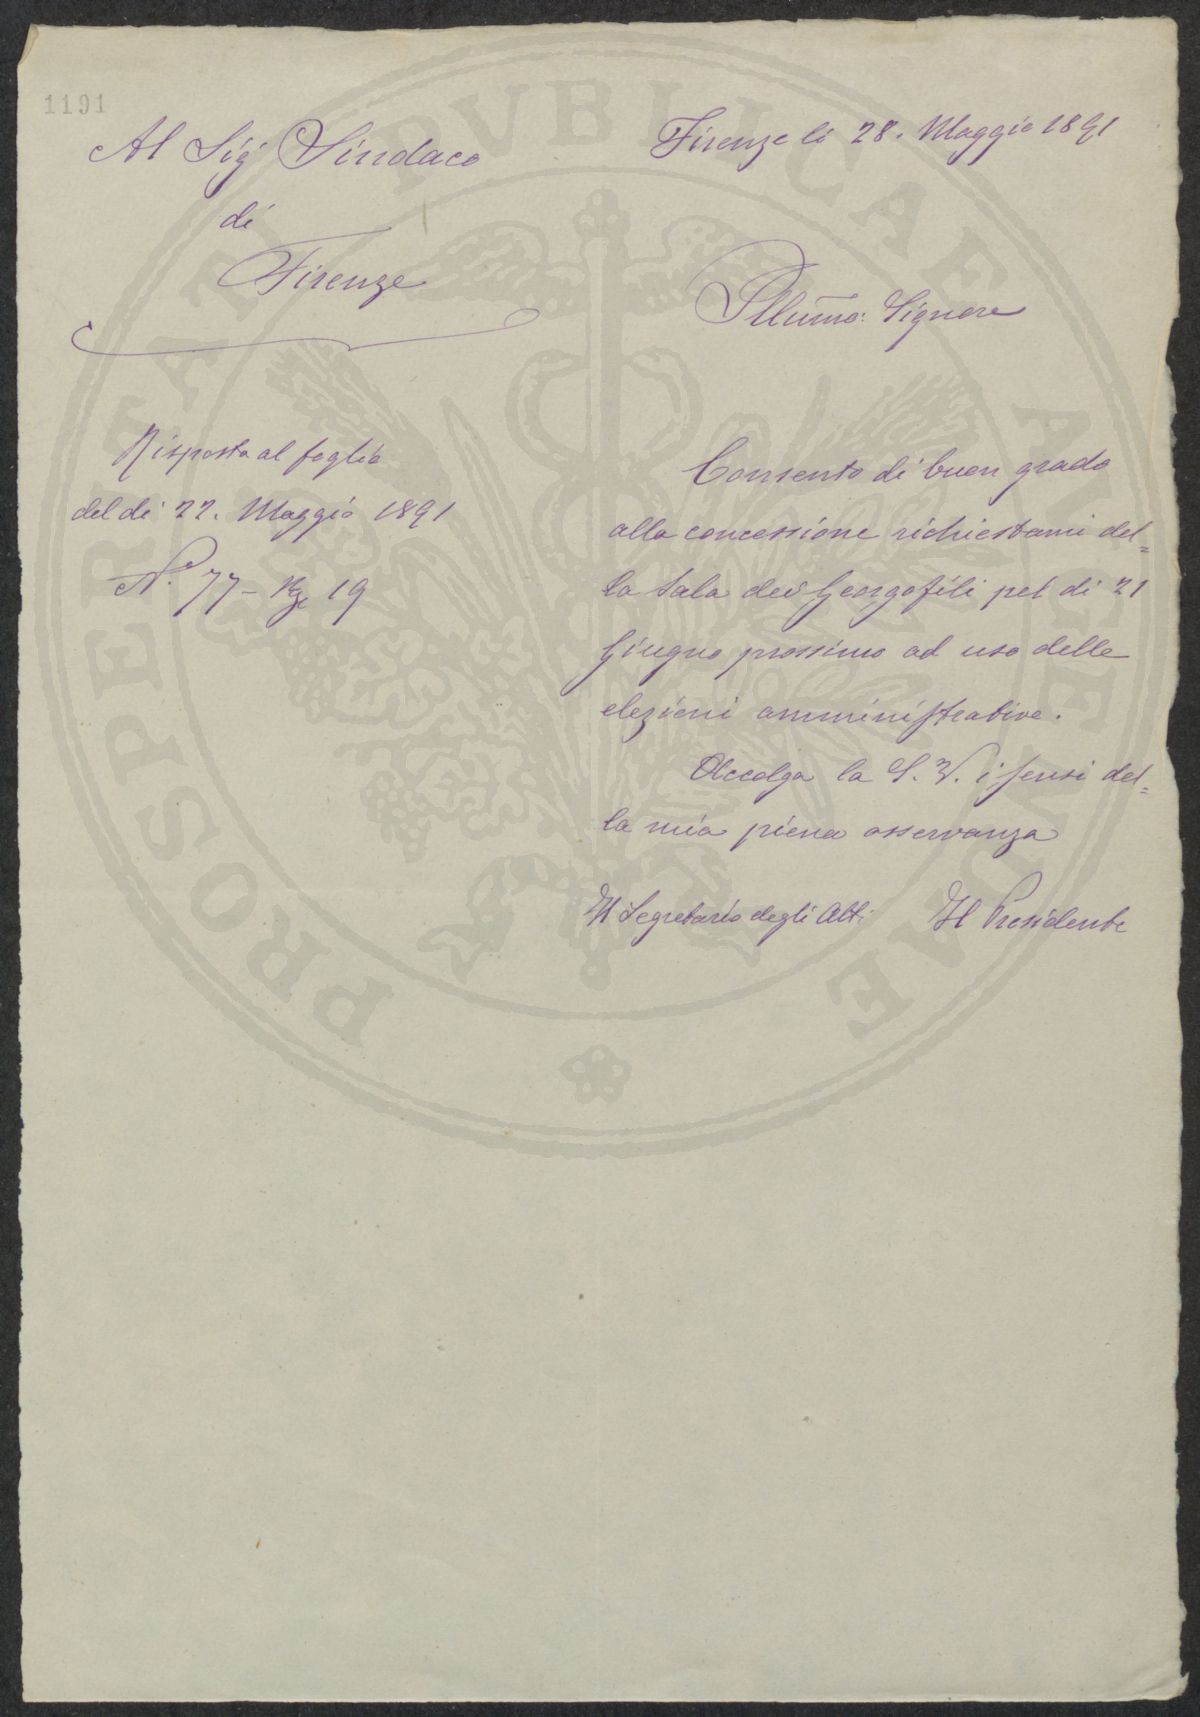 1191
Al Sig.r Sindaco
di
Firenze
Firenze li 28. Maggio 1891
Illumo: Signore
Risposta al foglio
del dì 22. Maggio 1891
N.° 77 - 19
Consento di buon grado
alla concessione richiestami del=
la Sala dei Georgofili pel dì 21
Giugno prossimo ad uso delle
elezioni amministrative.
Accolga la S. V. i sensi del=
la mia piena osservanza
Il Segretario degli Atti
Il Presidente
PROSPERITATI PVBLICAE AVGENDAE